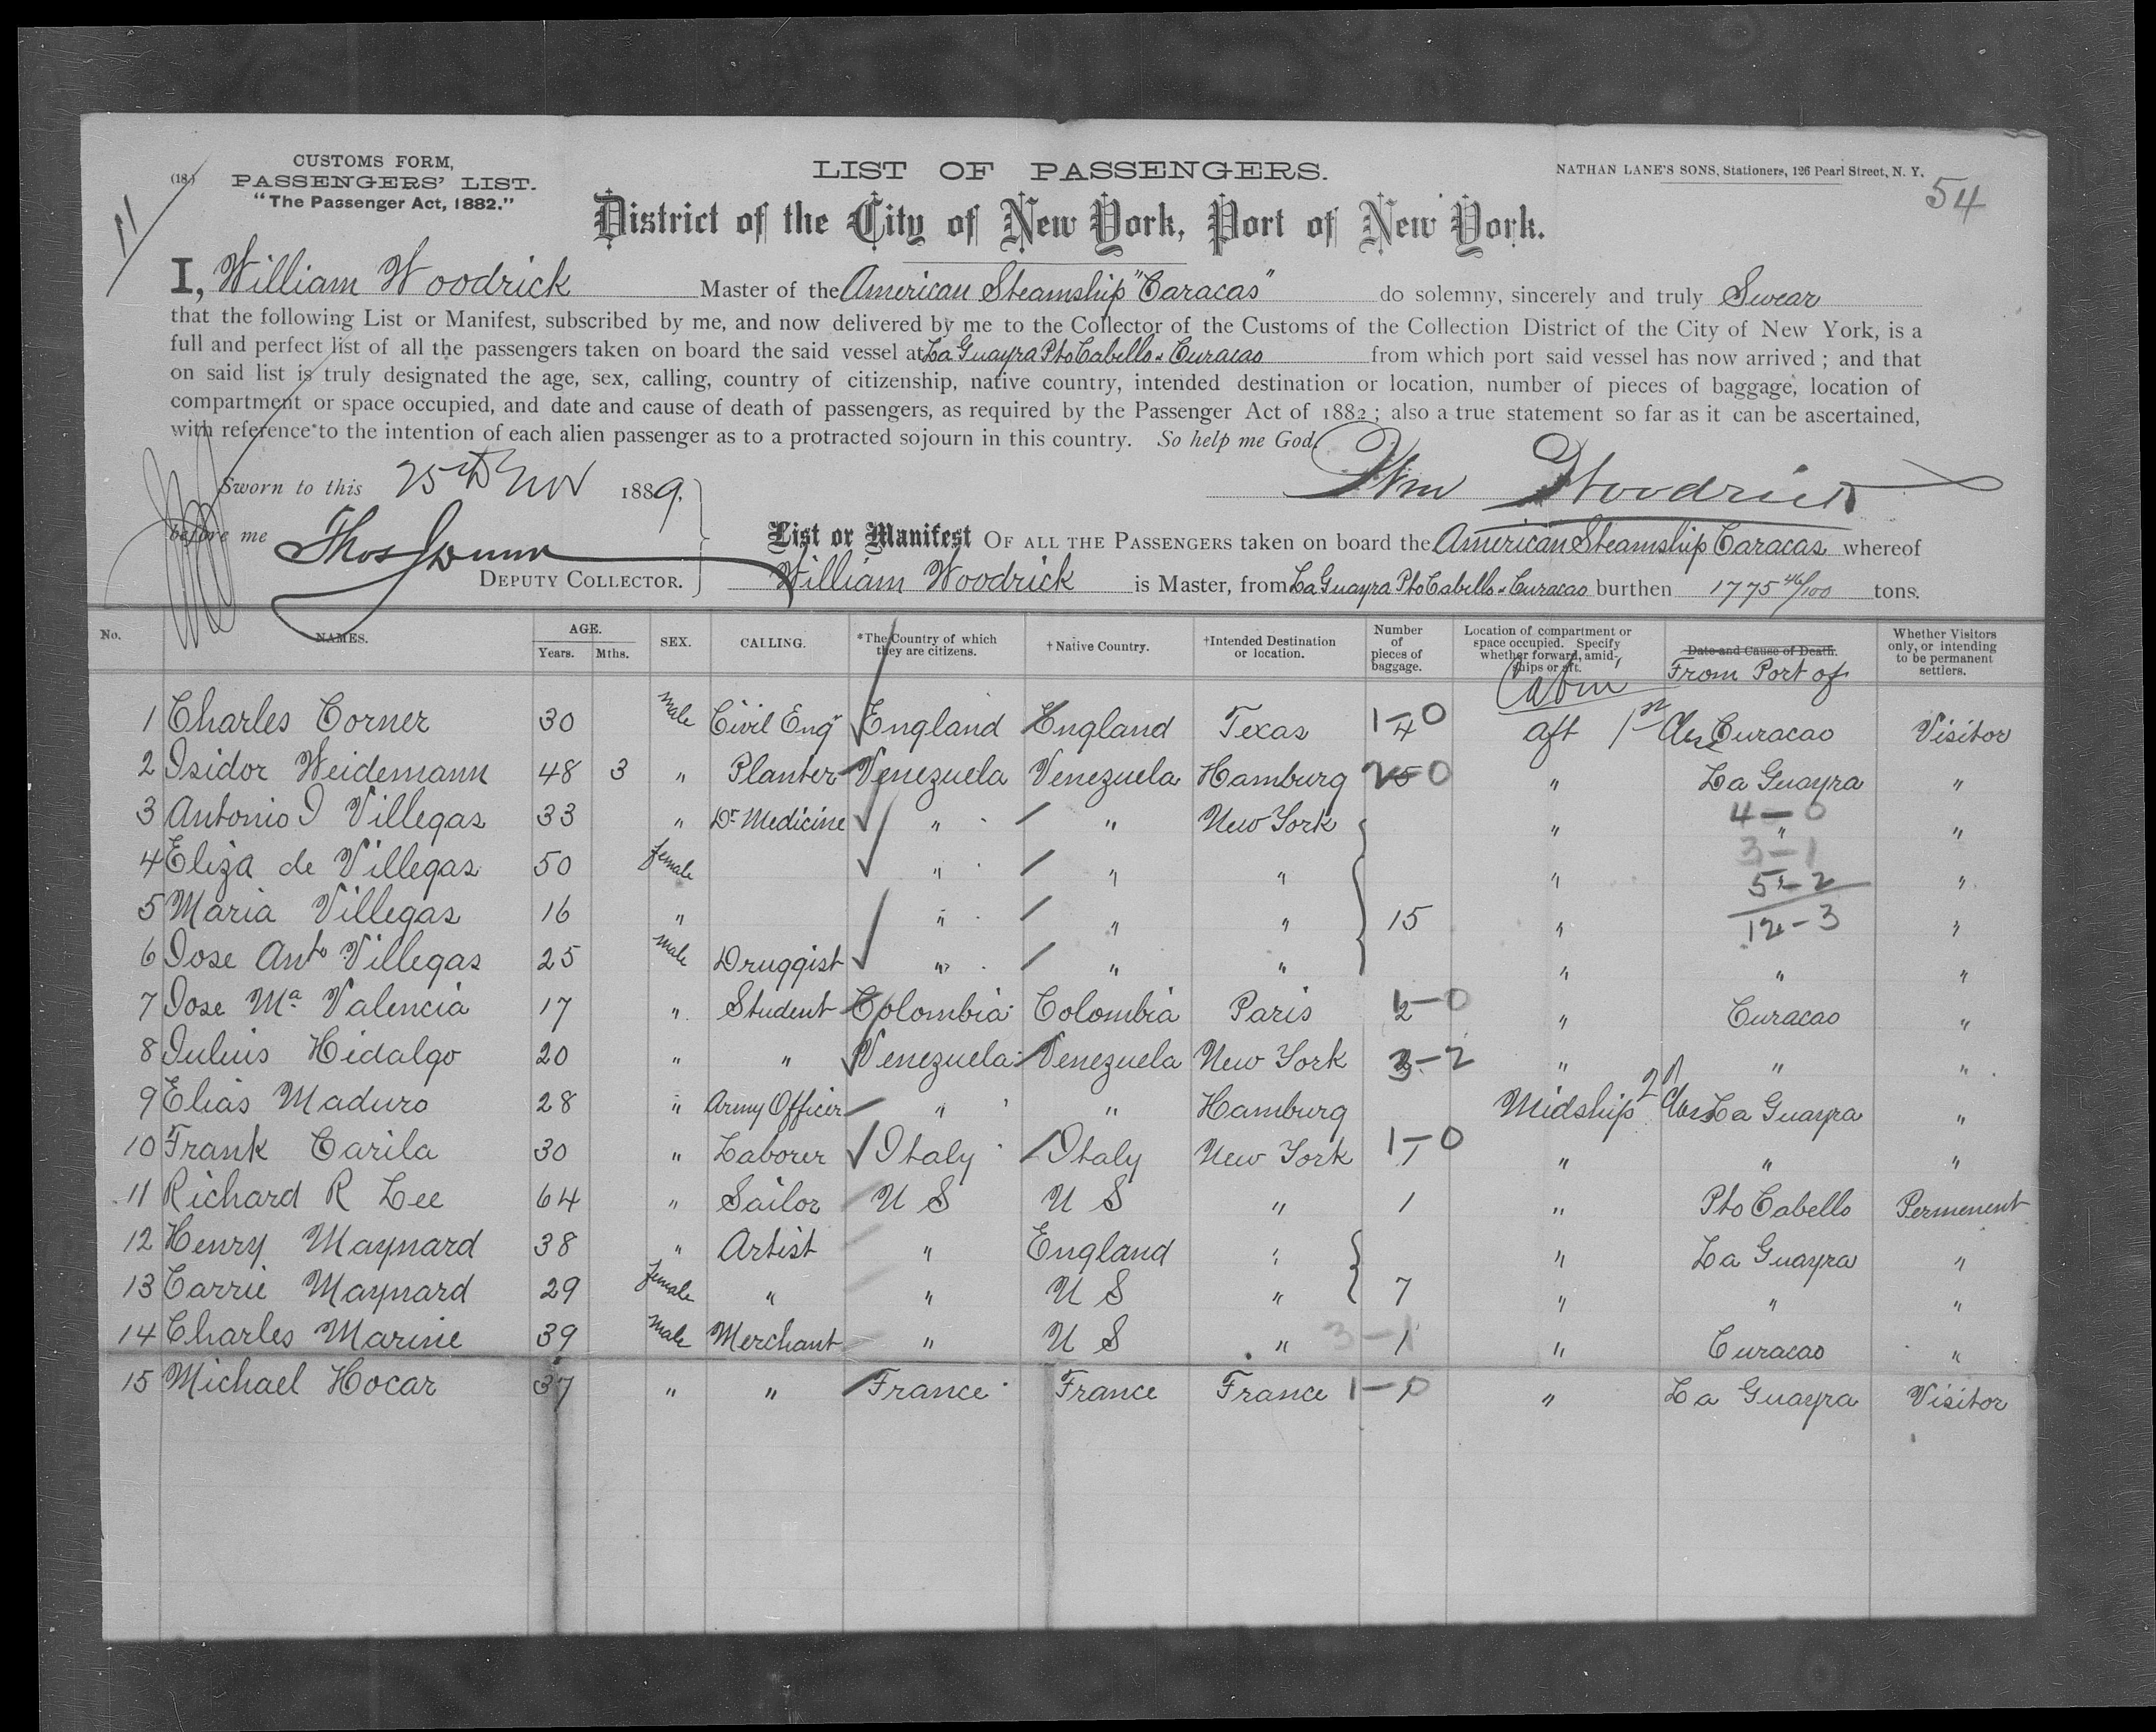 (18.)
CUSTOMS FORM,
PASSENGERS' LIST.
"The Passenger Act, 1882."
11
LIST OF PASSENGERS.
NATHAN LANE'S SONS, Stationers, 126 Pearl Street, N. Y.
54
District of the City of New York, Port of New York.
I, William Woodrick Master of the American Steamship "Caracas" do solemny, sincerely and truly Swear
that the following List or Manifest, subscribed by me, and now delivered by me to the Collector of the Customs of the Collection District of the City of New York, is a
full and perfect list of all the passengers taken on board the said vessel at La Guayra Pto Cabello & Curacao from which port said vessel has now arrived ; and that
on said list is truly designated the age, sex, calling, country of citizenship, native country, intended destination or location, number of pieces of baggage, location of
compartment or space occupied, and date and cause of death of passengers, as required by the Passenger Act of 1882 ; also a true statement so far as it can be ascertained,
with reference to the intention of each alien passenger as to a protracted sojourn in this country. So help me God.
Wm Woodrick
Sworn to this 25th Nov 1889.
before me Thos Dunn
DEPUTY COLLECTOR.
List or Manifest OF ALL THE PASSENGERS taken on board the American Steamship Caracas whereof
William Woodrick is Master, from La Guayra Pto Cabello & Curacao burthen 1775 46/100 tons.
No. NAMES. AGE. Years. Mths. SEX. CALLING. *The Country of which they are citizens. † Native Country. †Intended Destination or location. Number of pieces of baggage. Location of compartment or space occupied. Specify whether forward, amidships or aft. Date and Cause of Death. Whether Visitors only, or intending to be permanent settlers.
Cabin From Port of
1 Charles Corner 30 male Civil Engr England England Texas 1-0 4 aft 1st Class Curacao Visitor
2 Isidor Weidemann 48 3 " Planter Venezuela Venezuela Hamburg 0 " La Guayra "
3 Antonio J Villegas 33 " Dr Medicine " " New York " 4-0 " "
4 Eliza de Villegas 50 female " " " " 3-1 "
5 Maria Villegas 16 " " " " 15 " 5-2 "
12-3
6 Jose Anto Villegas 25 male Druggist " " " " " "
7 Jose Ma Valencia 17 " Student Colombia Colombia Paris 1-0 2 " Curacao "
8 Julius Hidalgo 20 " " Venezuela Venezuela New York 3-2 " " "
9 Elias Maduro 28 " Army Officer " " Hamburg Midship 2d Class La Guayra "
10 Frank Carila 30 " Laborer Italy Italy New York 1-0 1 " " "
11 Richard R Lee 64 " Sailor U S U S " 1 " Pto Cabello Permenent
12 Henry Maynard 38 " Artist " England " " La Guayra "
13 Carrie Maynard 29 female " " U S " 7 " " "
14 Charles Marine 39 male Merchant " U S " 3-1 1 " Curacao "
15 Michael Hocar 37 " " France France France 1-0 " La Guayra Visitor